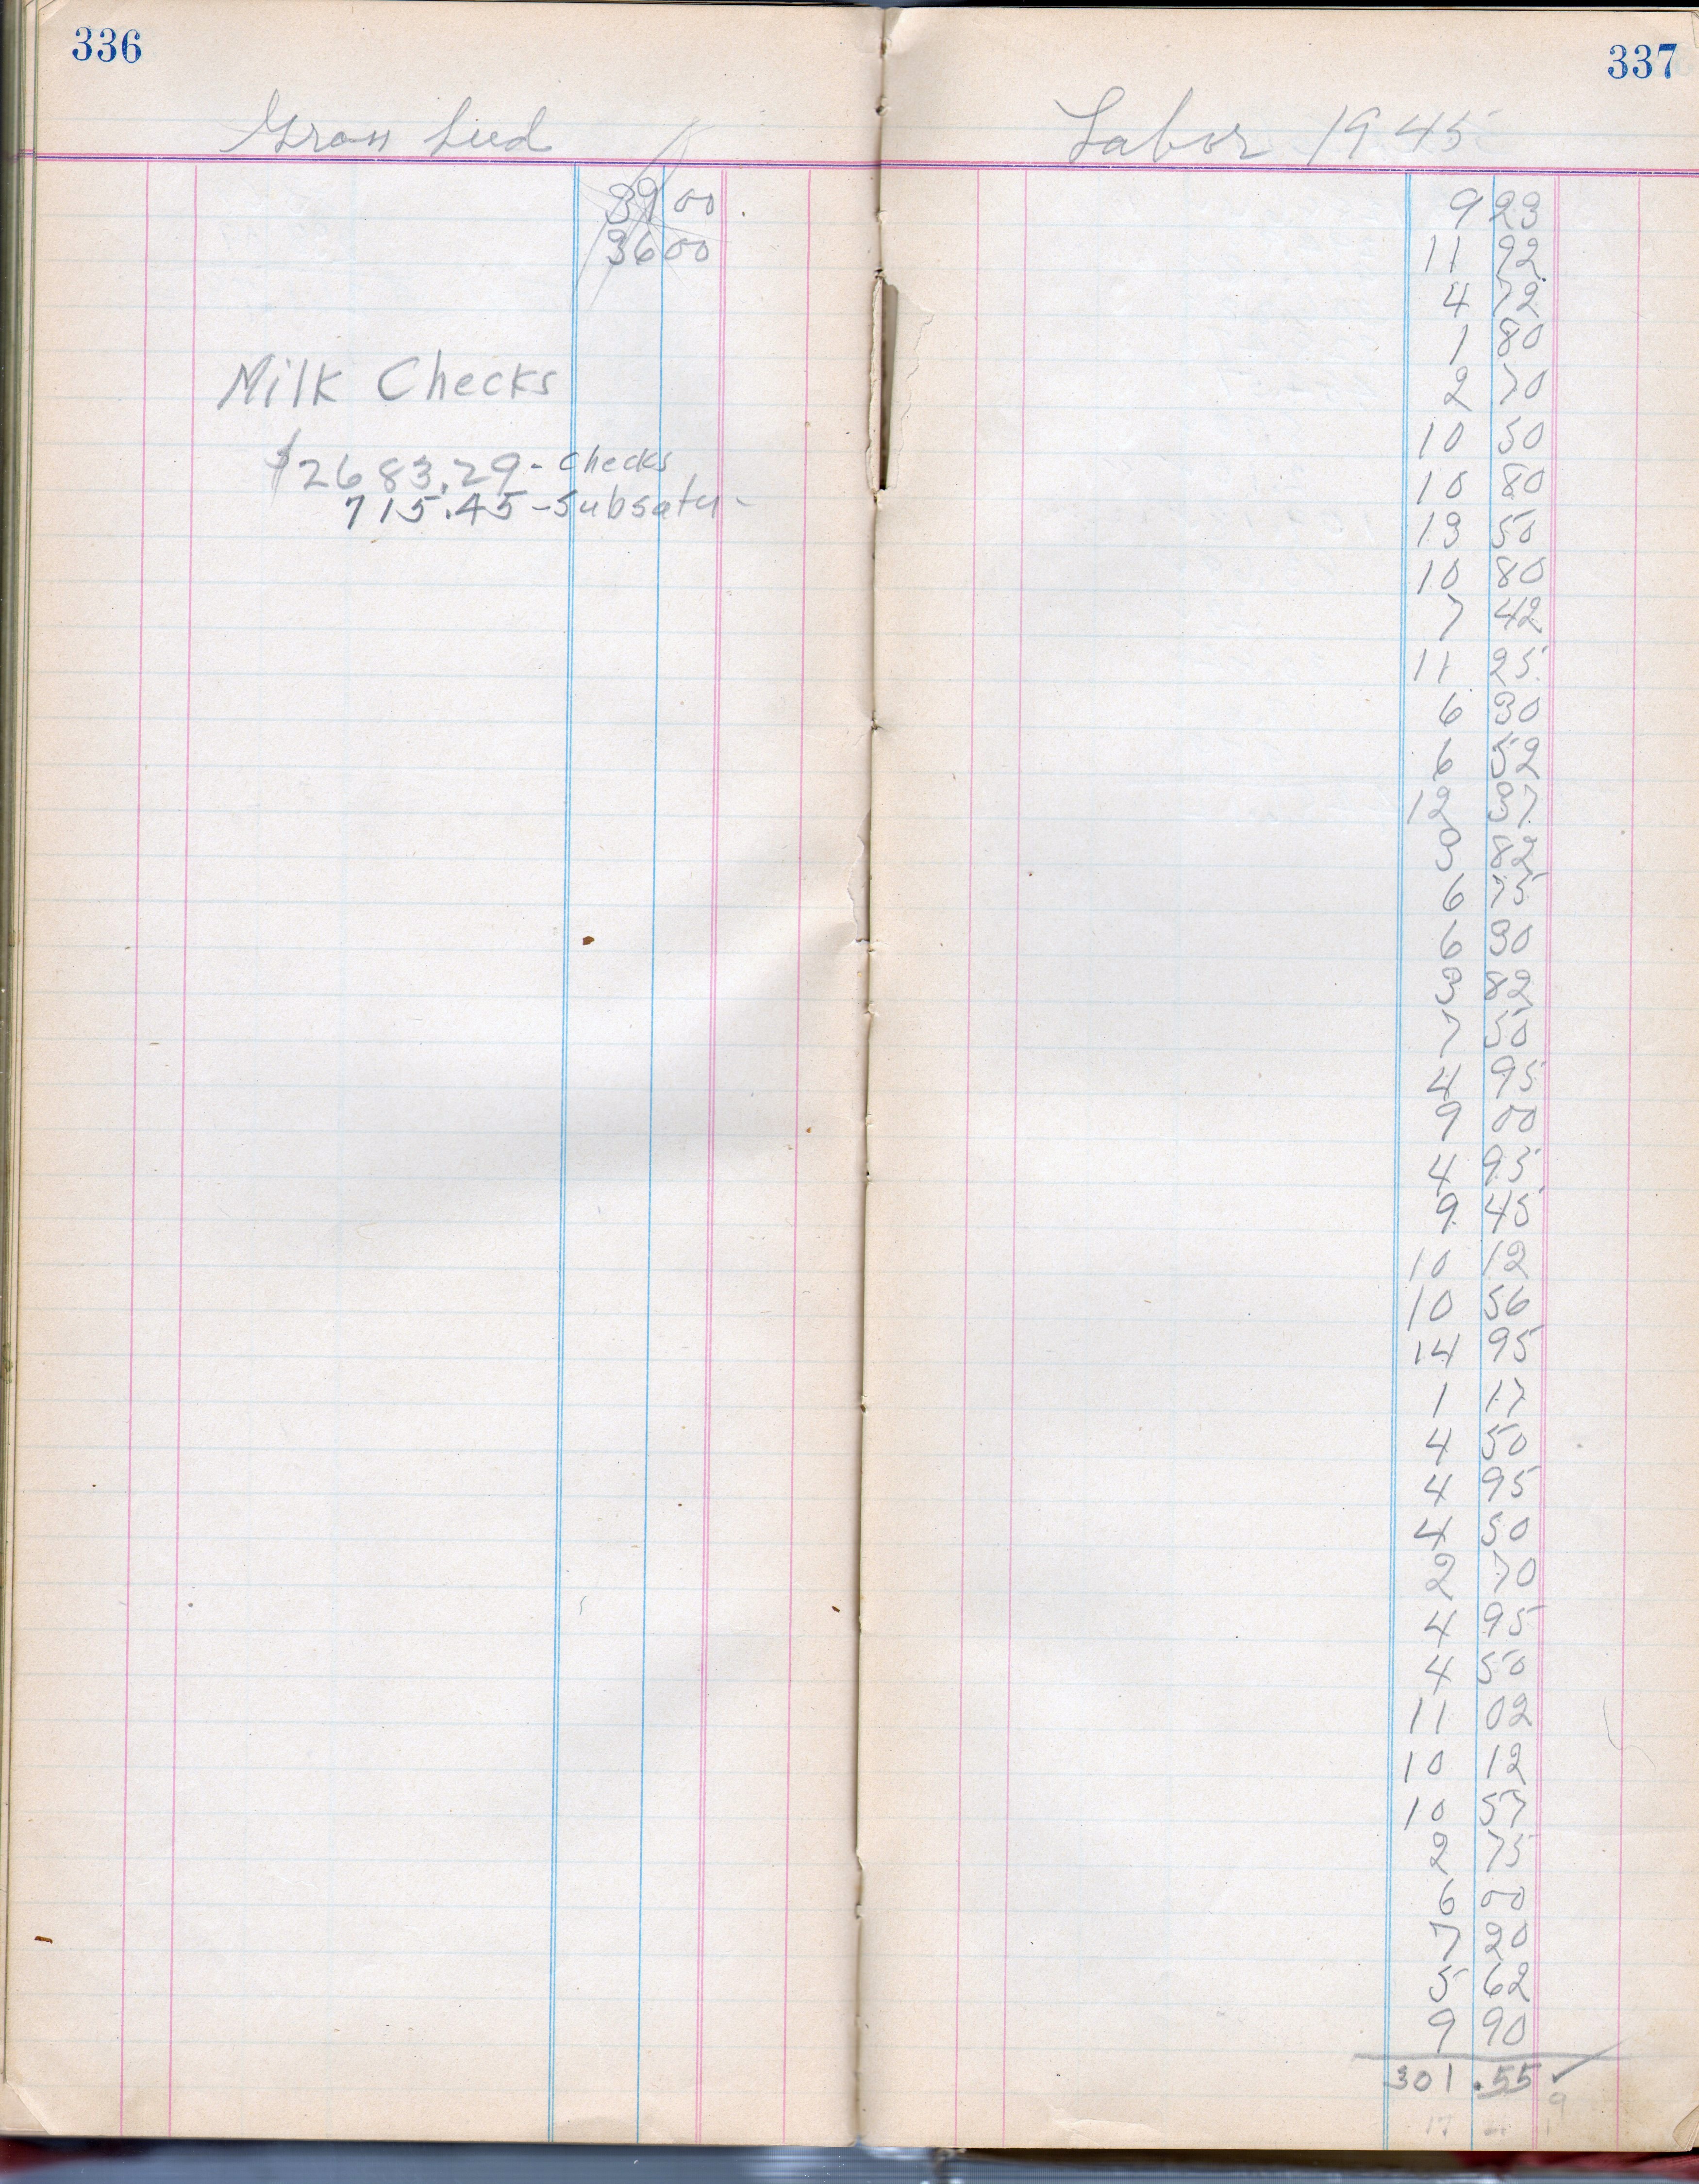 336
Grass Seed
39 00
36 00
Milk Checks
$2683.29 - Checks
715.45 -
337
Labor 1945
9 23
11 92
4 72
1 80
2 70
10 50
10 80
13 50
10 80
7 42
11 25
6 30
6 52
12 37
3 82
6 75
6 30
3 82
7 50
4 95
9 00
4 95
9 45
10 12
10 56
14 95
1 17
4 50
4 95
4 50
2 70
4 95
4 50
11 02
10 12
10 57
2 75
6 00
7 20
5 62
9 90
301.55